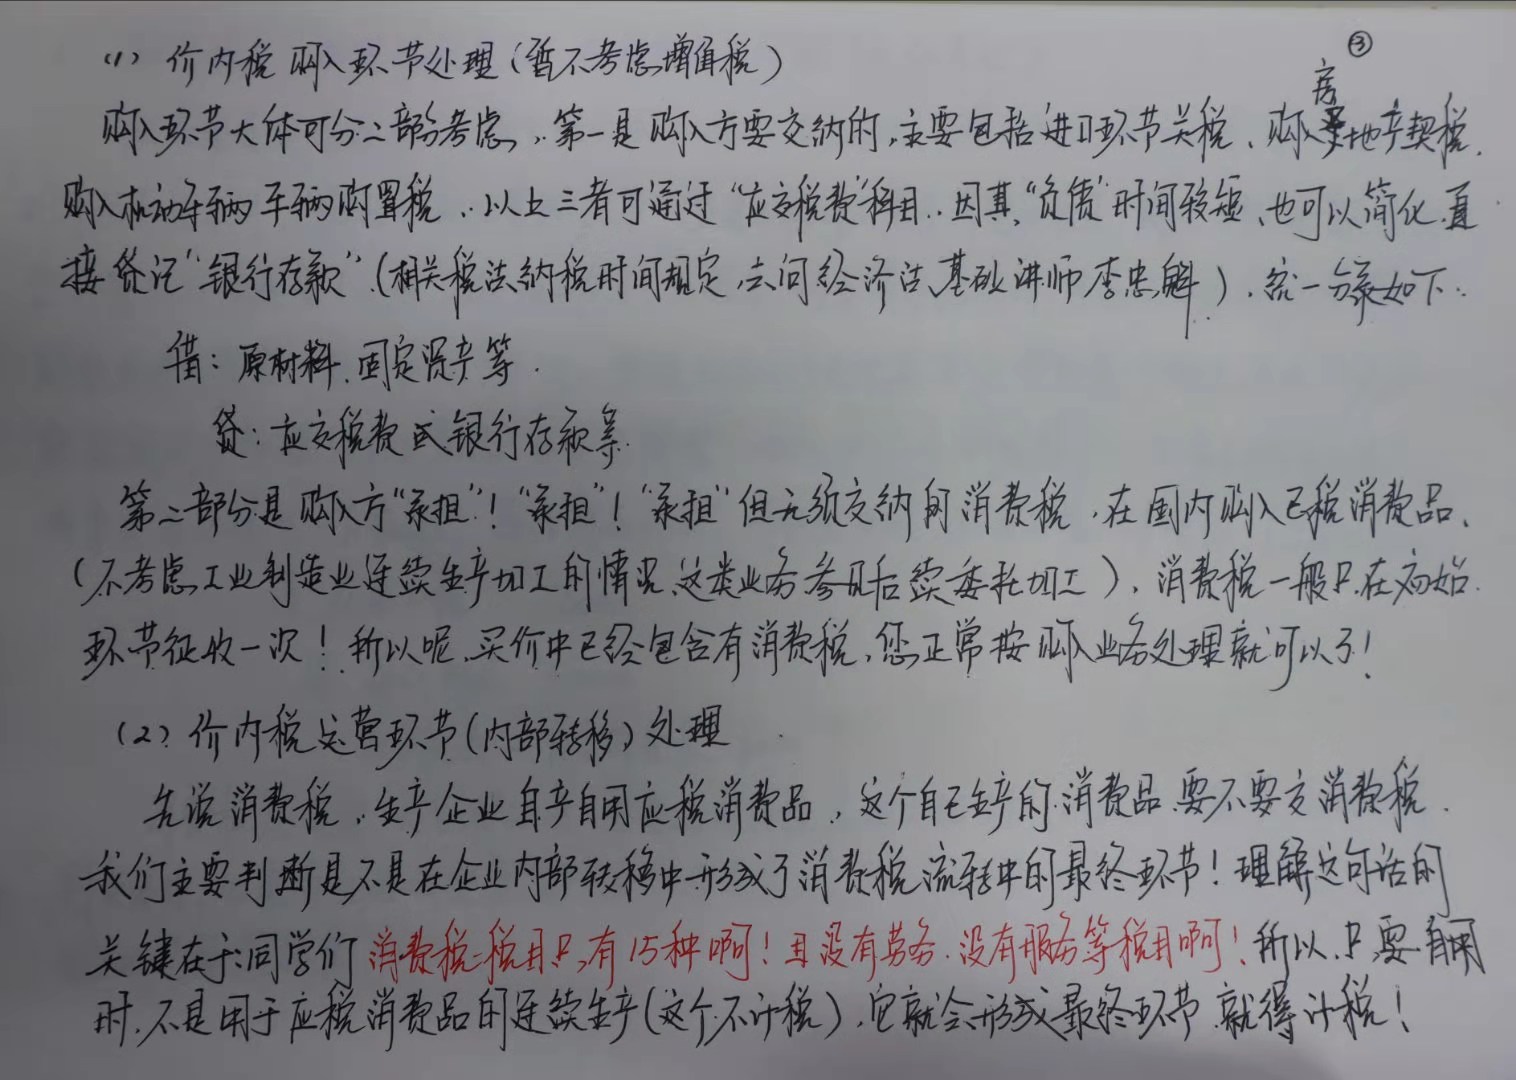 ③
(1) 价内税购入环节处理(暂不考虑增值税)
购入环节大体可分二部分考虑,第一是购入方要交纳的,主要包括进口环节关税、购入房地产契税、
购入机动车辆车辆购置税,以上三者可通过“应交税费”科目,因其“负债”时间较短,也可以简化直
接贷记“银行存款”(相关税法纳税时间规定,去问经济法基础讲师李忠魁),统一分录如下:
借:原材料、固定资产等
贷:应交税费或银行存款等
第二部分是购入方“承担”!“承担”!“承担”但无须交纳的消费税,在国内购入已税消费品,
(不考虑工业制造业连续生产加工的情况,这类业务参见后续委托加工),消费税一般只在初始
环节征收一次!所以呢,买价中已经包含有消费税,您正常按购入业务处理就可以了!
(2) 价内税运营环节(内部转移)处理
先说消费税,生产企业自产自用应税消费品,这个自己生产的消费品要不要交消费税,
我们主要判断是不是在企业内部转移中形成了消费税流转中的最终环节!理解这句话的
关键在于:同学们消费税税目只有15种啊!且没有劳务、没有服务等税目啊!所以,只要自用
时,不是用于应税消费品的连续生产(这个不计税),它就会形成最终环节,就得计税!